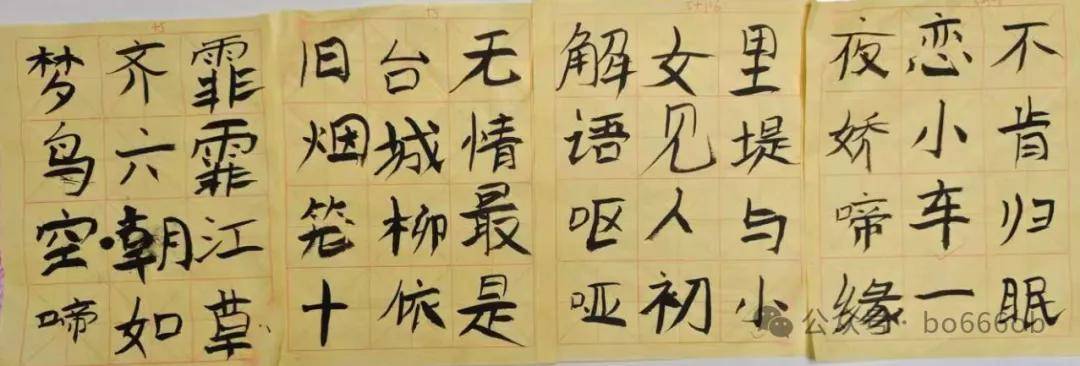 霏霏江草
齐六朝如
梦鸟空啼
无情最是
台城柳依
旧烟笼十
里堤与小
女见人初
解语呕哑
不肯归眠
恋小车一
夜娇啼缘
+5
+5
5+1+6